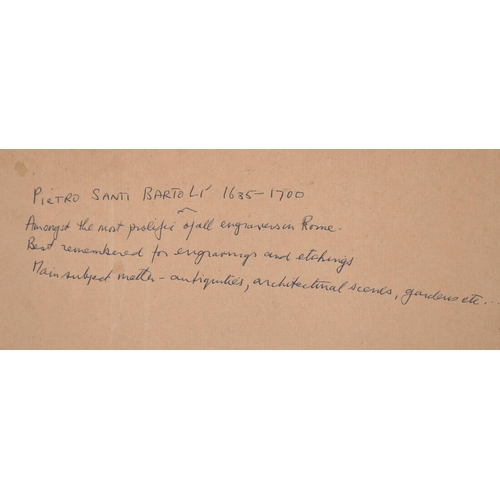 PIETRO SANTI BARTOLI 1635-1700
Amongst the most prolific of all engravers in Rome.
Best remembered for engravings and etchings
Main subject matter - antiquities, architectural scenes, gardens etc...